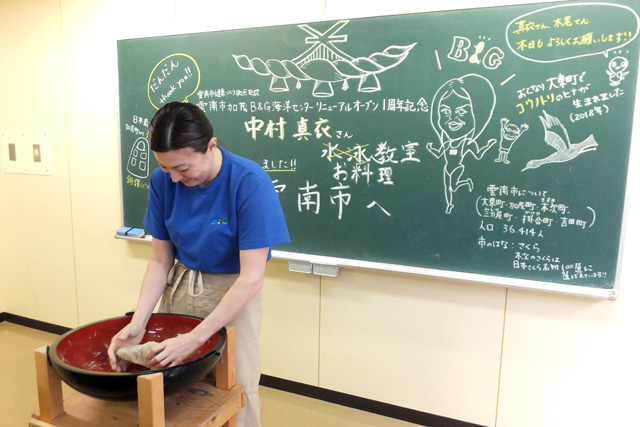 だんだん
thank you!!
雲南市加茂B&G海洋センターリニューアルオープン1周年記念
中村真衣さん
水泳教室
お料理
ました!!
雲南市へ
B&G
真衣さん、木尾さん
本日もよろしくお願いします!!
おとなり大東町で
コウノトリのヒナが
生まれました
(2018年)
雲南市について
大東町・加茂町・木次町
三刀屋町・掛合町・吉田町
人口:36414人
市のはな:さくら
木次のさくらは
日本さくら名所100選に
選ばれています!!
日本